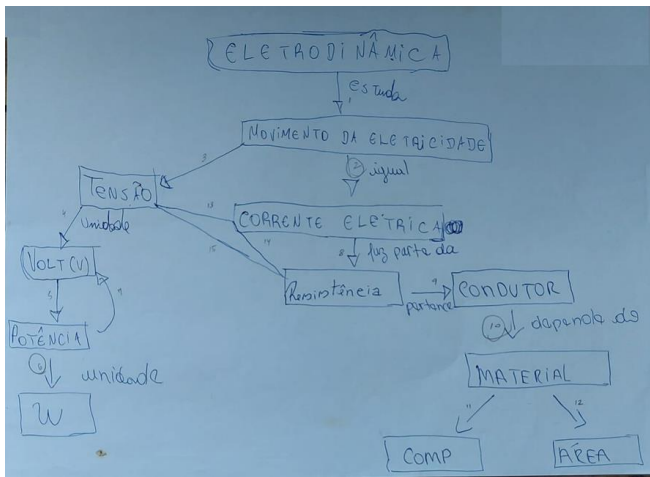 ELETRODINÂMICA
estuda
1
MOVIMENTO DA ELETRICIDADE
3
2 igual
TENSÃO
13
CORRENTE ELETRICA
4
unidade
15
14
8 faz parte da
VOLT (V)
Resistência
9
pertence
CONDUTOR
5
10 depende do
POTÊNCIA
6 unidade
MATERIAL
W
11
12
COMP
ÁREA